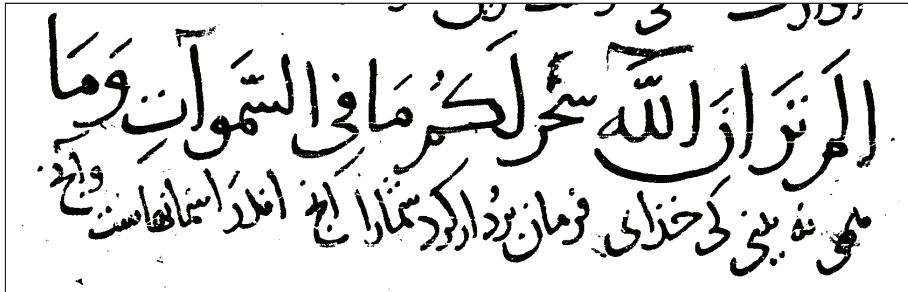 الَمْ تَرَ انَّ اللَّهَ سَخَّرَ لَكُمْ مَا فِي السَّمَوَاتِ وَمَا
همی نه بینی کی خذای فرمان بردار کرد شمارا آنچ اندر اسمانهاست وآنچ